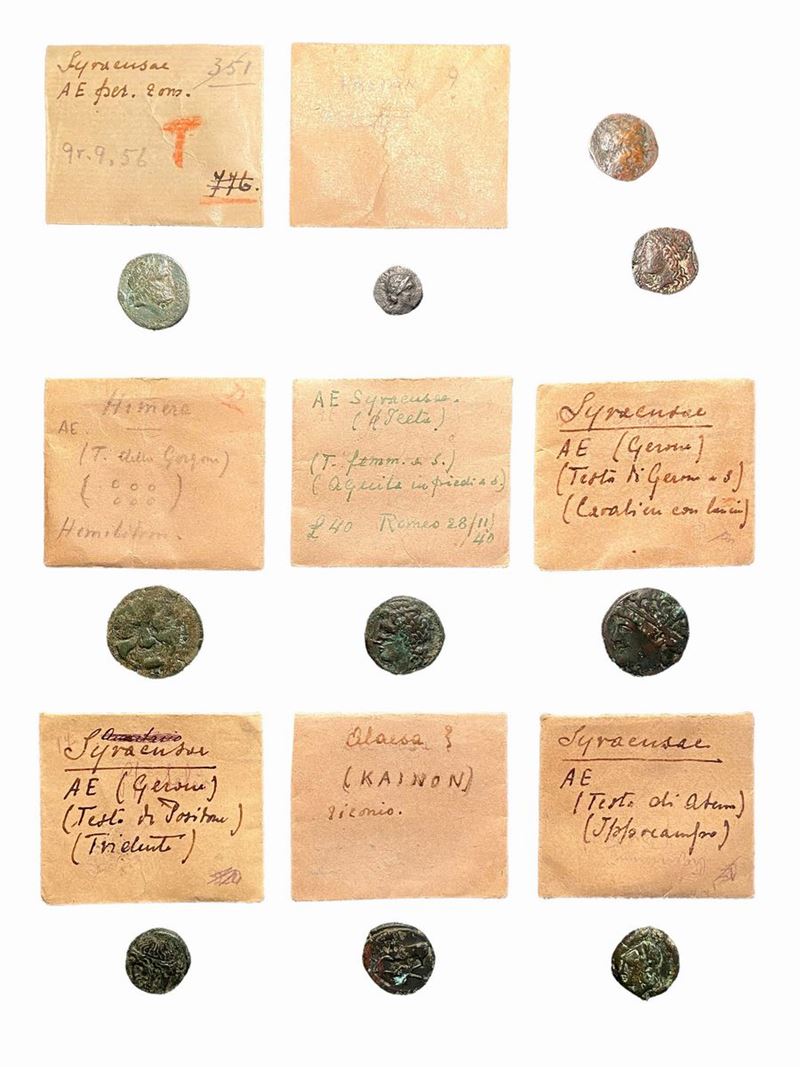 Syracusae 351
AE per. Rom.
gr. 9,56 T
776.
?
Himera
AE.
(T. della Gorgone)
( o o o
o o o )
Hemilitron.
AE Syracusae.
(Iceta)
(T. femm. a s.)
(Aquila in piedi a s.)
£ 40 Romeo 28/11/
40
Syracusae
AE (Gerone)
(Testa di Gerone a s)
(Cavaliere con lancia)
Syracusae
AE (Gerone)
(Testa di Posidone)
(Tridente)
Alaesa ?
(KAINON)
Syracusae
AE
(Testa di Atena)
(Ippocampo)